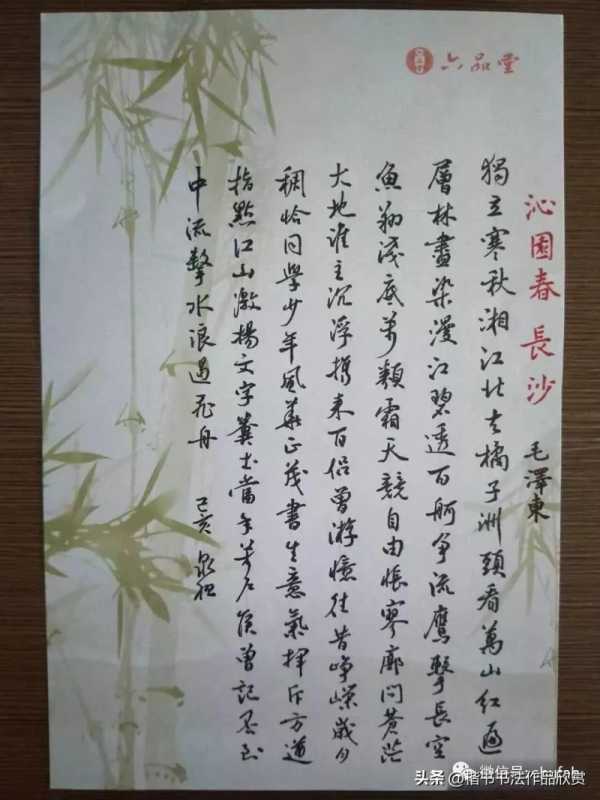 六品堂
沁園春 長沙
毛澤東
獨立寒秋湘江北去橘子洲頭看萬山紅遍
層林盡染漫江碧透百舸争流鷹擊長空
魚翔淺底萬類霜天競自由悵寥廓問蒼茫
大地誰主沉浮攜來百侶曾游憶往昔崢嶸歲月
稠恰同學少年風華正茂書生意氣揮斥方遒
指點江山激揚文字糞土當年萬户侯曾記否到
中流擊水浪遏飛舟 己亥
微信号:
头条 @楷书书法作品欣赏